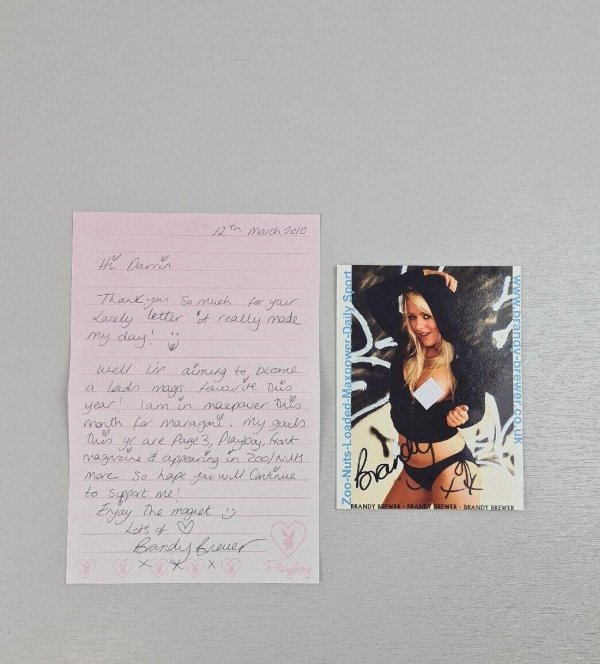 12th March 2010
Hi Darrin
Thank you so much for your
Lovely letter it really made
my day!
Well I'm aiming to become
a lads mags favorite this
year! I am in maxpower this
month for maragoni. My goals
this yr are Page 3, Playboy, Front
magazine & appearing in Zoo/Nuts
more. So hope you will continue
to support me!
Enjoy the magnet
Lots of
Brandy Brewer
x x x
Playboy
Zoo-Nuts-Loaded-Maxpower-Daily Sport
www.brandy-brewer.co.uk
Brandy
xx
BRANDY BREWER - BRANDY BREWER - BRANDY BREWER